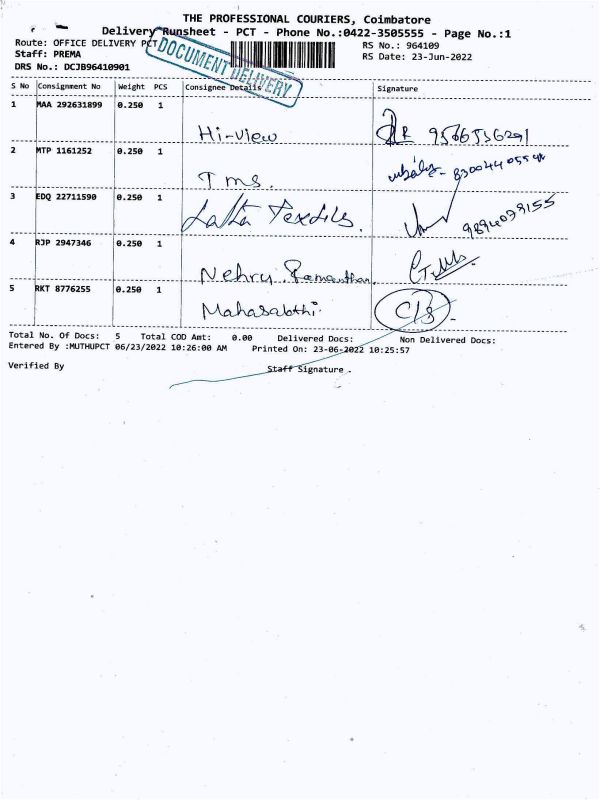 THE PROFESSIONAL COURIERS, Coimbatore
Delivery Runsheet - PCT - Phone No.:0422-3505555 - Page No.:1
Route: OFFICE DELIVERY PCT
RS No.: 964109
Staff: PREMA
RS Date: 23-Jun-2022
DRS No.: DCJB96410901
DOCUMENT DELIVERY
S No Consignment No Weight PCS Consignee Details Signature
1 MAA 292631899 0.250 1
Hi-view 9566536291
2 MTP 1161252 0.250 1
Tms.
3 EDQ 22711590 0.250 1
Latha Textiles. 9894099155
4 RJP 2947346 0.250 1
Nehru
5 RKT 8776255 0.250 1
Mahasakthi C/s
Total No. Of Docs: 5 Total COD Amt: 0.00 Delivered Docs: Non Delivered Docs:
Entered By :MUTHUPCT 06/23/2022 10:26:00 AM Printed On: 23-06-2022 10:25:57
Verified By Staff Signature .